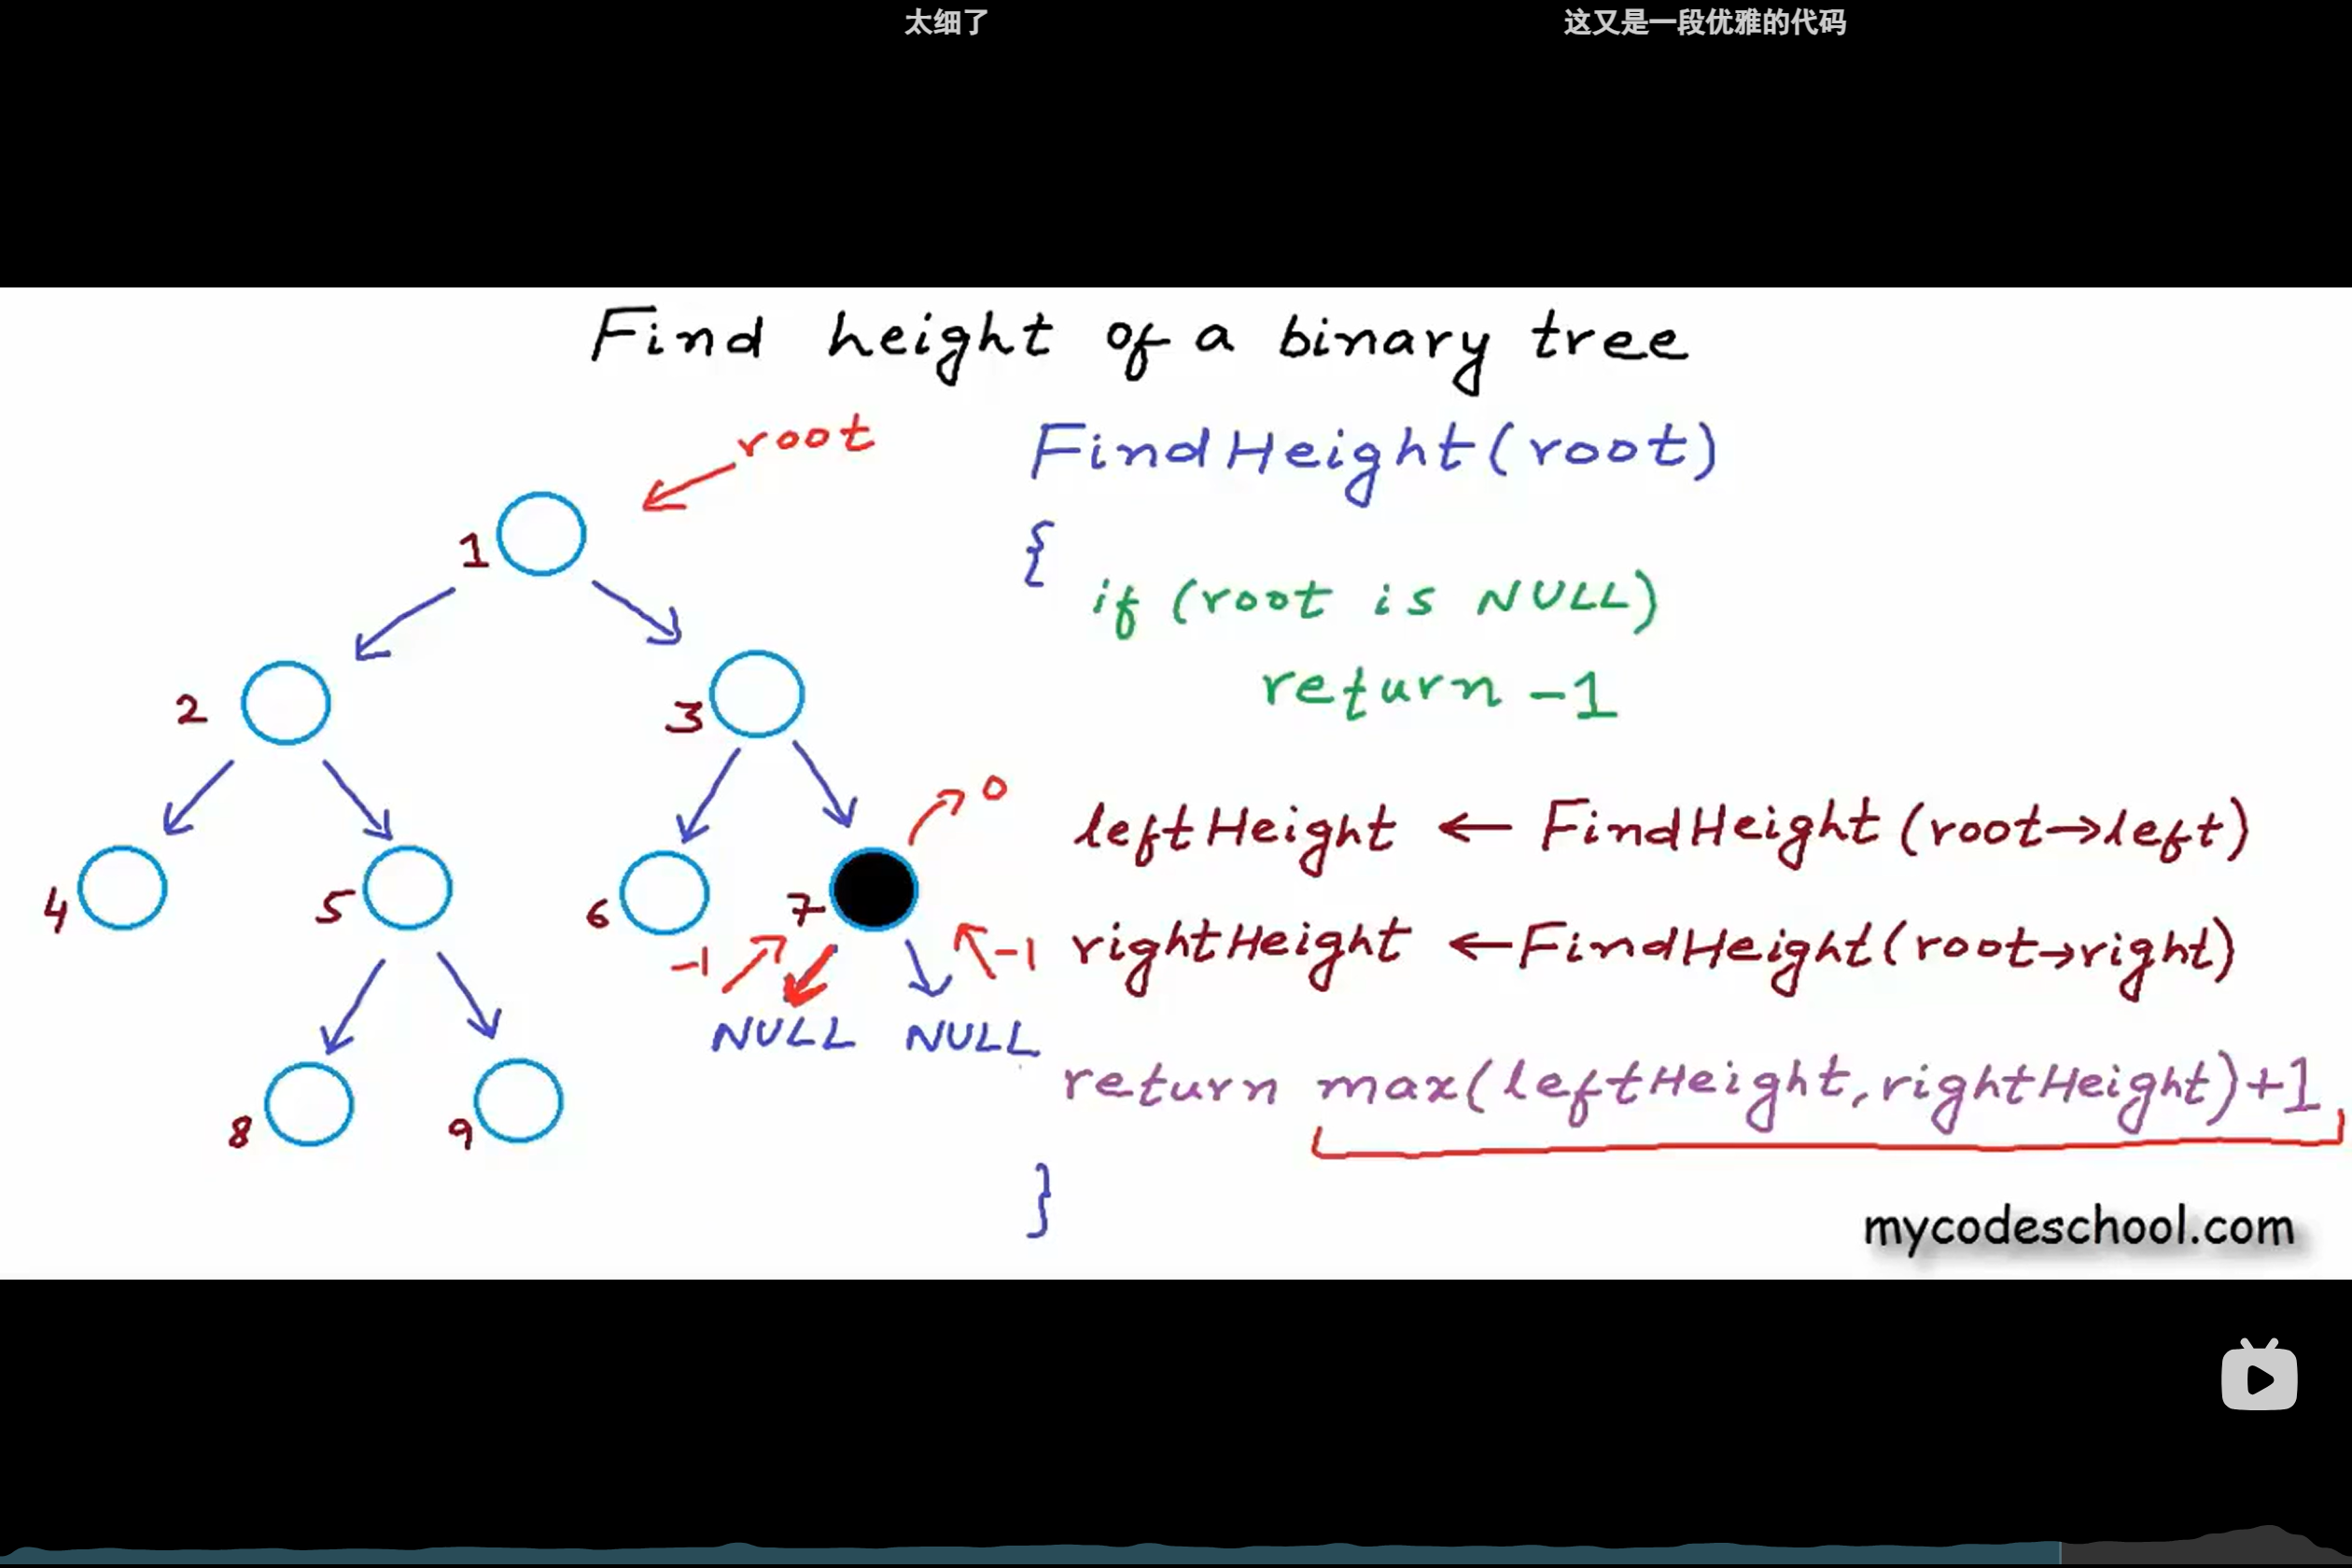 太细了
这又是一段优雅的代码
Find height of a binary tree
root
1
2
3
4
5
6
7
8
9
0
-1
-1
NULL
NULL
FindHeight(root)
{
if (root is NULL)
return -1
leftHeight ← FindHeight(root→left)
rightHeight ← FindHeight(root→right)
return max(leftHeight,rightHeight)+1
}
mycodeschool.com